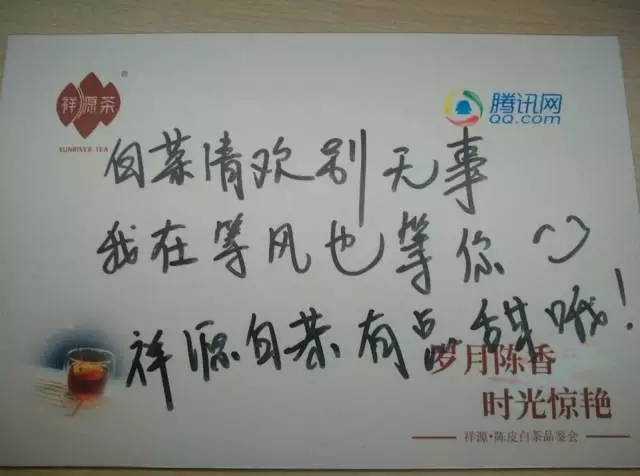 祥源茶
SUNRIVER TEA
腾讯网
QQ.com
白茶清欢别无事
我在等风也等你
祥源白茶有点甜哦!
岁月陈香
时光惊艳
祥源·陈皮白茶品鉴会